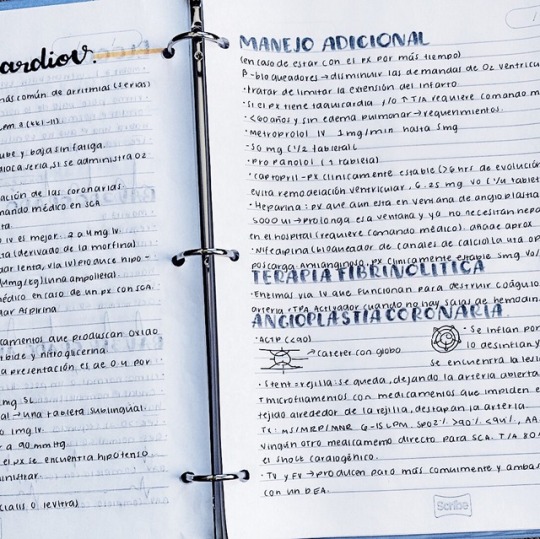 ardiov.
más común de arritmias (serias)
sube y baja sin fatiga.
díaca seria, si se administra O2
ación de las coronarias
mando médico en SCA
IV el mejor: 2 a 4 mg IV
(derivado de la morfina)
dar lenta, vía IV produce hipo-
(una ampolleta)
édico en caso de un px con SCA
ar Aspirina
camentos que produscan óxido
rbide y nitroglicerina
a presentación es de 0.4 por
mg SL
al → una tableta sublingual.
o 1mg IV.
r a 90 mmHg
el px se encuentra hipotenso
inistrar.
cialis o levitra)
MANEJO ADICIONAL
(en caso de estar con el px por más tiempo)
β-bloqueadores → disminuir las demandas de O2 ventricu
• tratar de limitar la extensión del infarto
• si el px tiene taquicardia y/o ↑ T/A requiere comando m
• <60 años y sin edema pulmonar → requerimientos.
• Metroprolol IV 1mg/min hasta 5mg
- 50 mg (1/2 tableta)
• Propanolol (1 tableta)
• captopril - px clínicamente estable (>6 hrs de evolución
evita remodelación ventricular, 6.25 mg VO (1/4 tablet
• Heparina: px que aun esta en ventana de angioplastia
5000 UI → prolonga esa ventana y ya no necesitan hepa
en el hospital (requiere comando médico). añade aprox
• Nifedipina (bloqueador de canales de calcio) la
poscarga, antianginoso, px clínicamente estable 5mg VO/
TERAPIA FIBRINOLITICA
• Enzimas vía IV que funcionan para destruir coágulo
arteria • TPA Activador cuando no hay salas de hemodina
ANGIOPLASTIA CORONARIA
• ACTP (cao)
→ catéter con globo
• Se inflan por
lo desintían y
se encuentra la lesi
• Stent → rejilla: se queda, dejando la arteria abierta
microfilamentos con medicamentos que impiden e
tejido alrededor de la rejilla, destapan la arteria
Tx: MS/MRP/MNR 6-15 LPM, SPO2% >90% <94%, AA
ningún otro medicamento directo para SCA. T/A 80
el shock cardiogénico.
• TV y FV → producen paro más comunmente y ambas
con un DEA.
Scribe